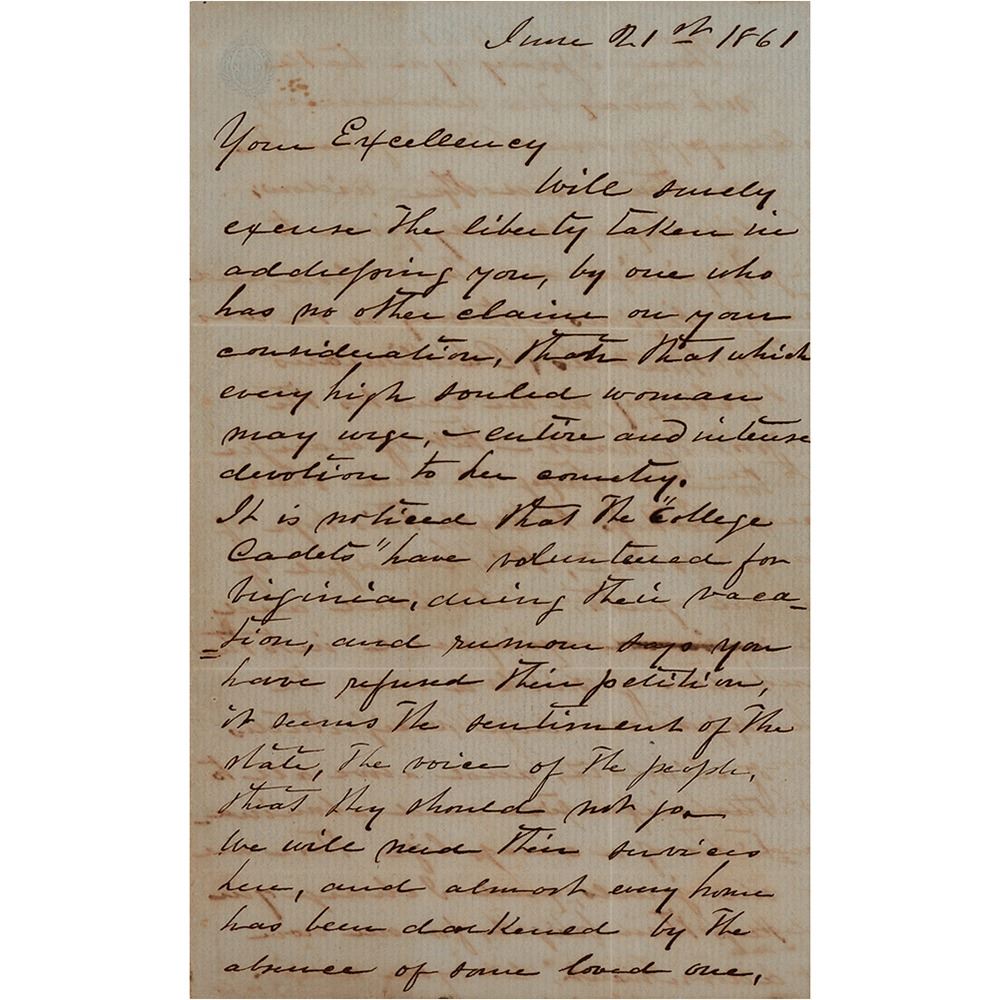 June 21st 1861
Your Excellency
Will surely
excuse the liberty taken in
addressing you, by one who
has no other claim on your
consideration, than that which
every high souled woman
may urge, – entire and intense
devotion to her country.
It is noticed that the "College
Cadets" have volunteered for
Virginia, during their vaca-
=tion, and rumour says you
have refused their petition,
it seems the sentiment of the
state, the voice of the people,
that they should not go
We will need their services
here, and almost every home
has been darkened by the
absence of some loved one,